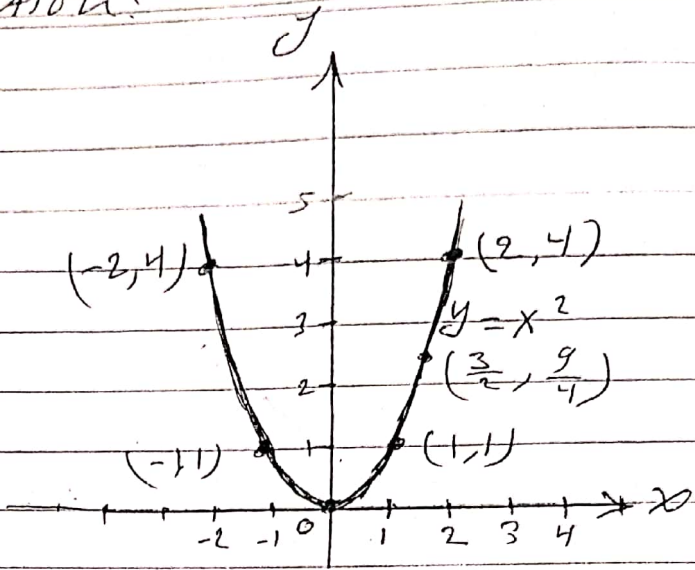 y
5
(-2,4) 4 (2,4)
3 y = x²
2 (3/2, 9/4)
(-1,1) 1 (1,1)
-2 -1 0 1 2 3 4 x